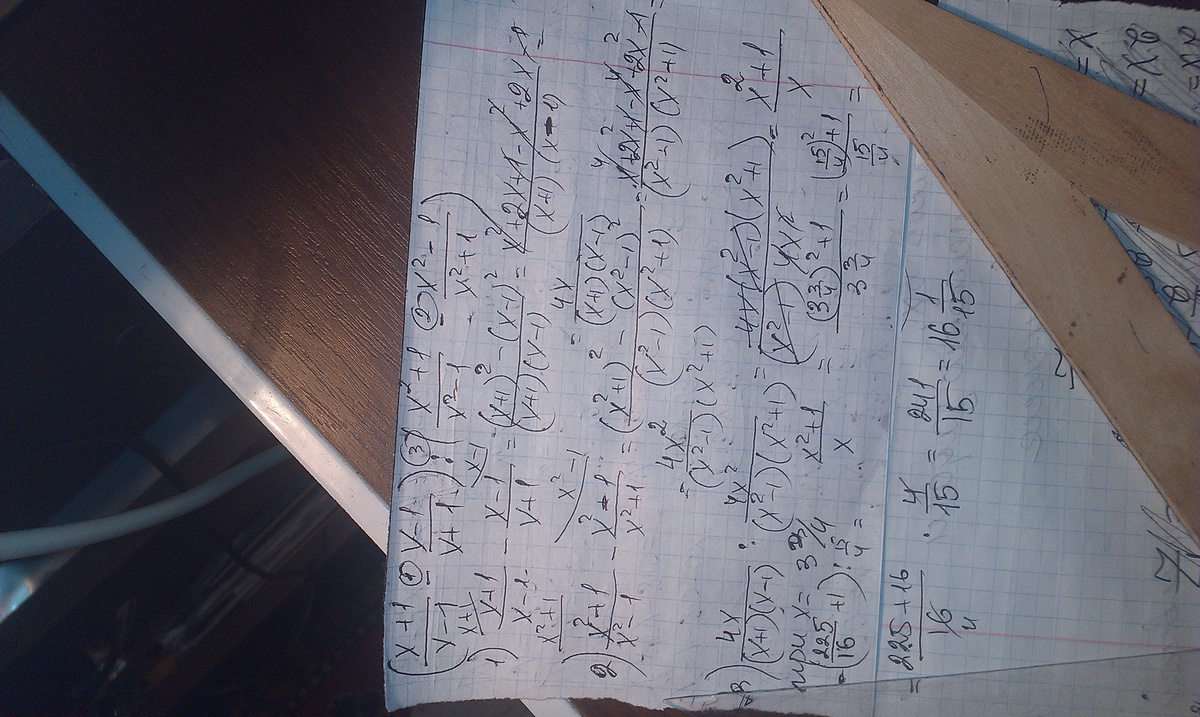 (x+1/x-1 - x-1/x+1) : (x²+1/x²-1 - x²-1/x²+1)
1) x+1/x-1 - x-1/x+1 = (x+1)² - (x-1)²/(x+1)(x-1) = x²+2x+1-x²+2x-1/(x+1)(x-1) =
= 4x/(x+1)(x-1)
2) x²+1/x²-1 - x²-1/x²+1 = (x²+1)² - (x²-1)²/(x²-1)(x²+1) = x⁴+2x²+1-x⁴+2x²-1/(x²-1)(x²+1) =
= 4x²/(x²-1)(x²+1)
3) 4x/(x+1)(x-1) : 4x²/(x²-1)(x²+1) = 4x(x²-1)(x²+1)/(x²-1)4x² = x²+1/x
при x = 3 3/4 x²+1/x = (3 3/4)²+1/3 3/4 = (15/4)²+1/15/4 =
= (225/16 + 1) : 15/4 =
= 225+16/16 · 4/15 = 241/15 = 16 1/15
= x
= x2
= x2